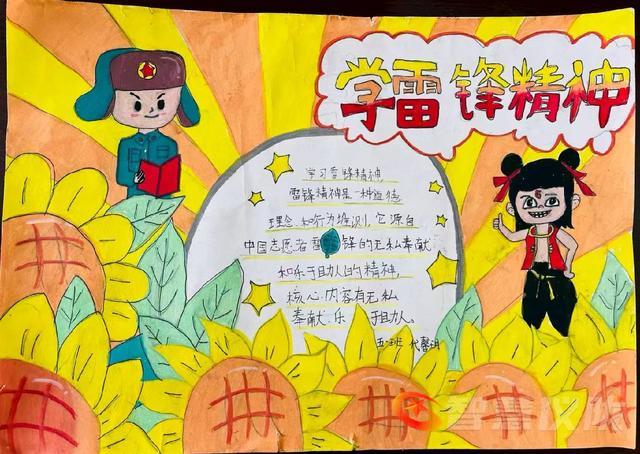 学雷锋精神
学习雷锋精神
雷锋精神是一种道德
理念、和行为准则,它源自
中国志愿者雷锋的无私奉献
和乐于助人的精神,
核心内容有无私
奉献、乐于助人.
五·班
智慧